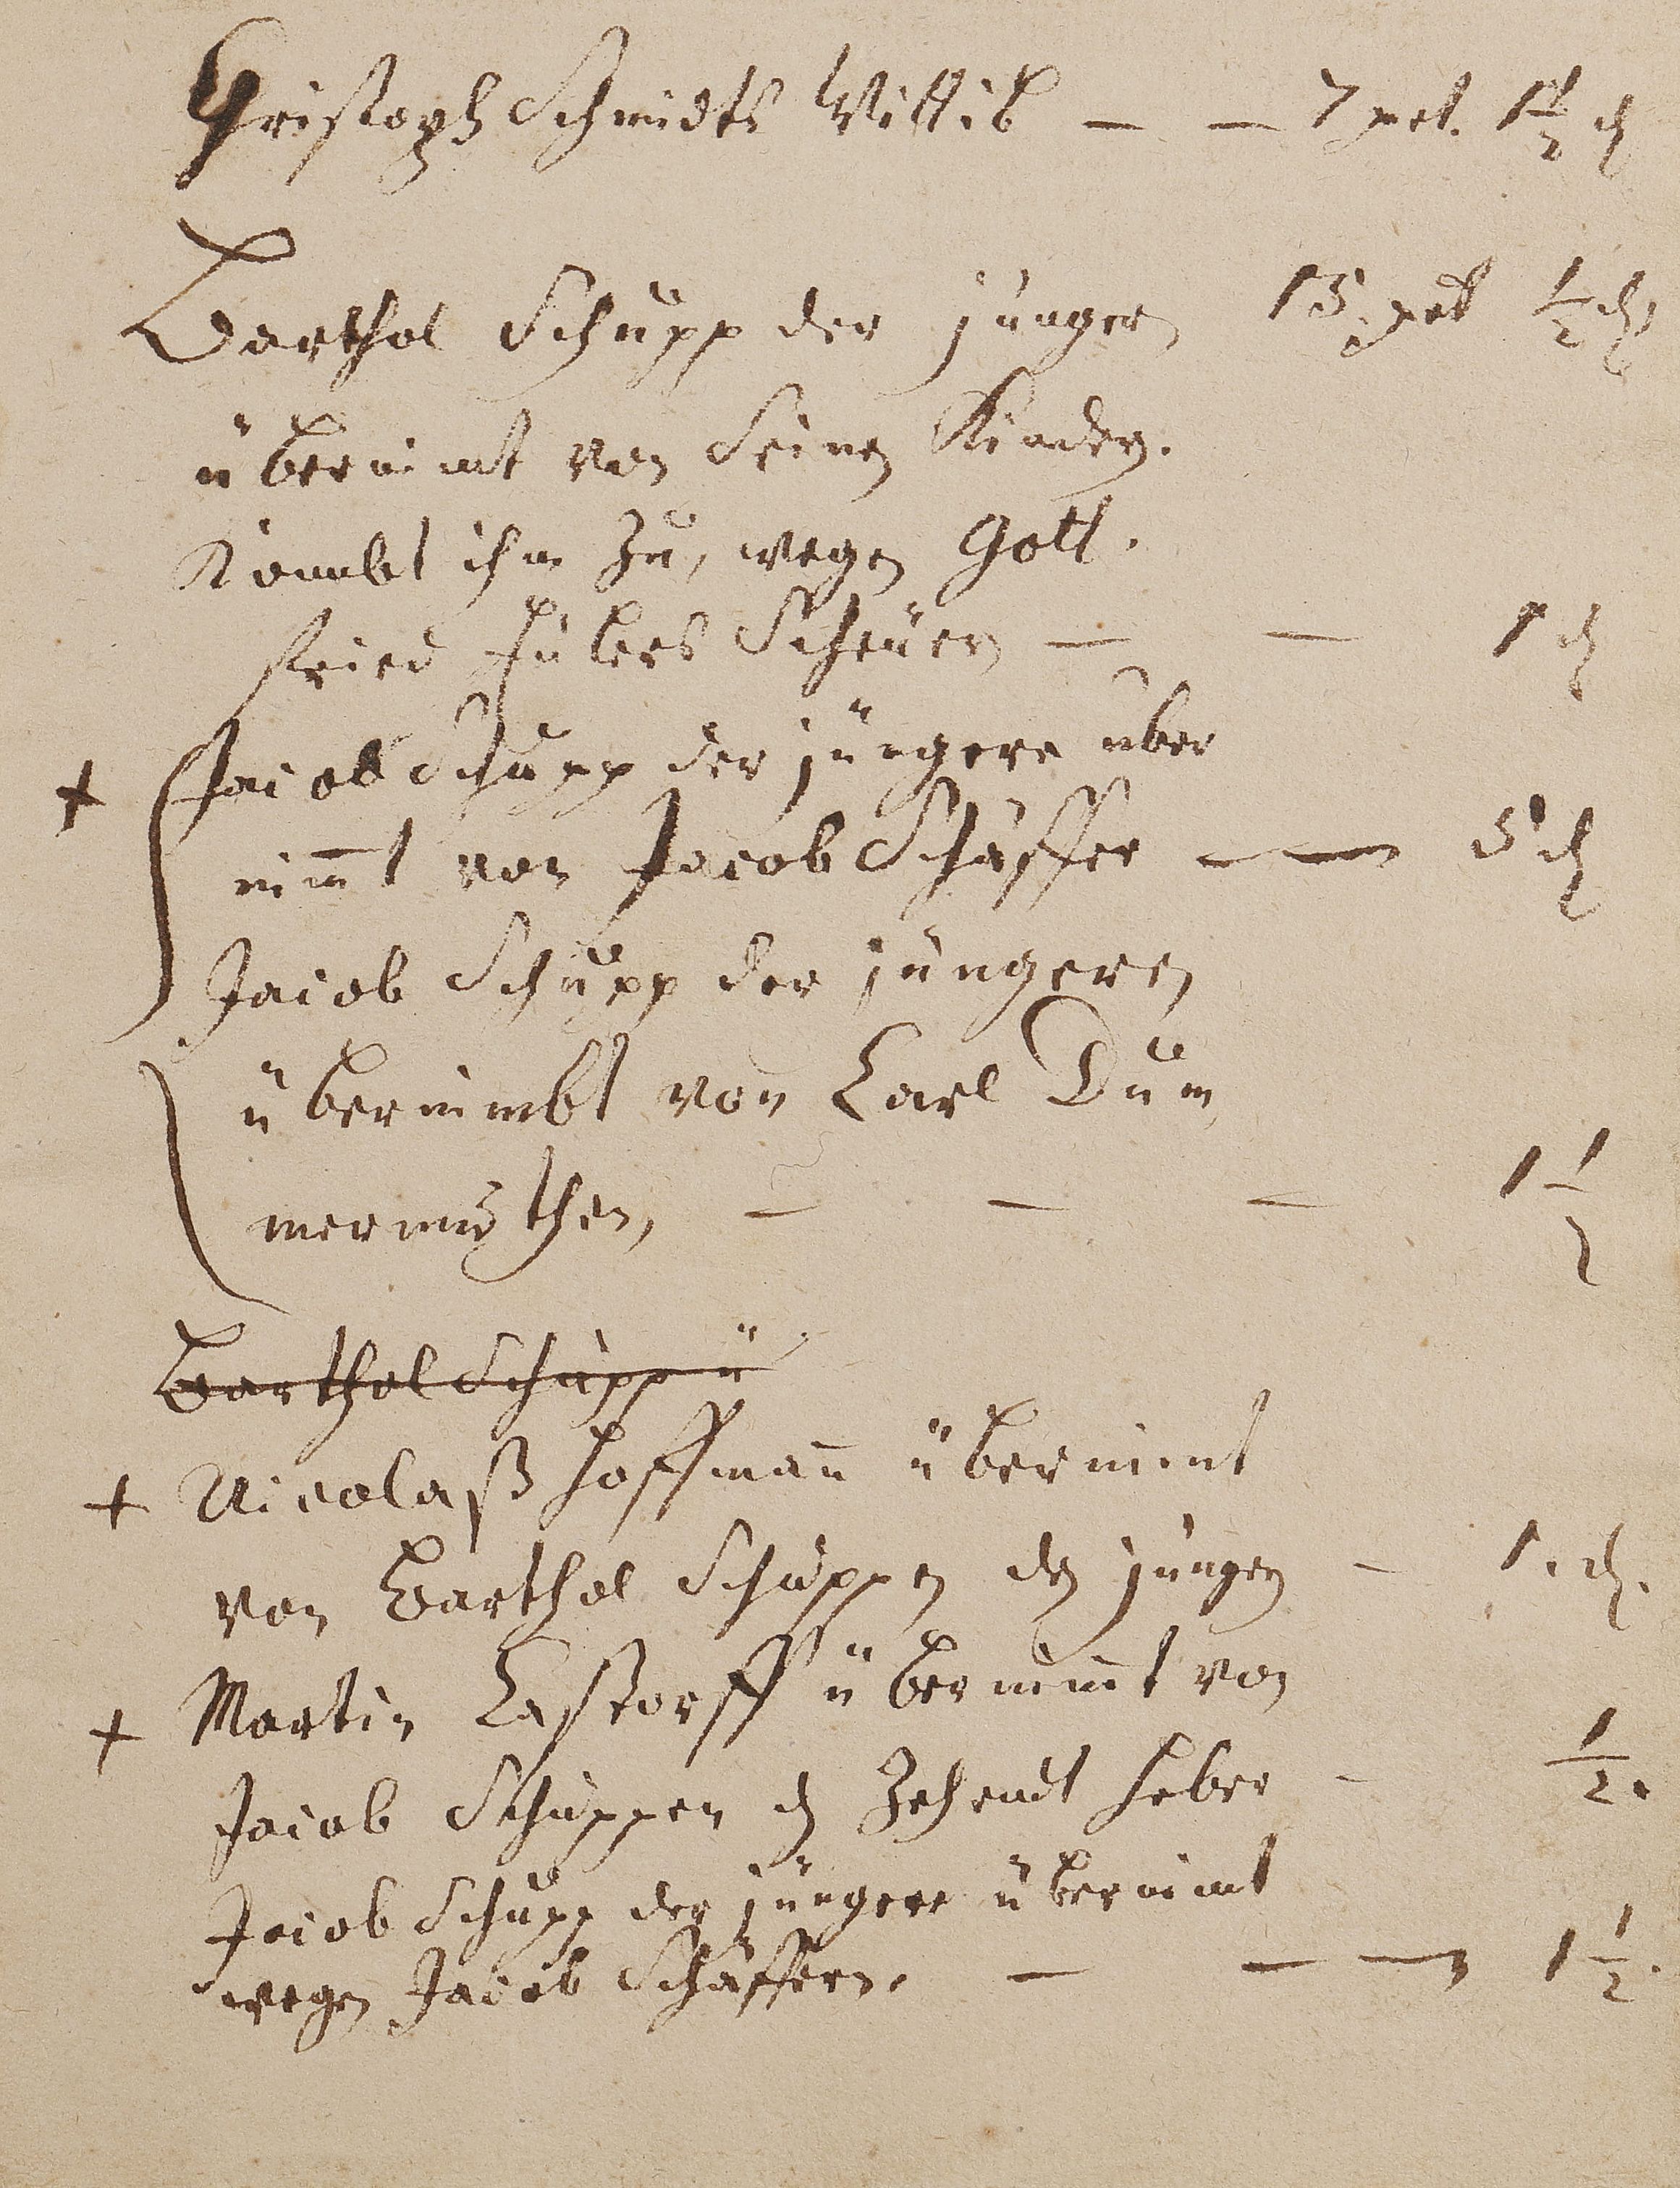 Christoph Schmidts Wittib — — 7 pet. 1 1/2 d
Barthol Schupp der jünger 13. pet 1/2 d
übernimt von Seinen Kinder.
Kombt ihm zu, wegen Gott.
fried Hubers Scheuer — — 1 d
+ Jacob Schupp der jüngere über
nimt von Jacob Schäffer — 5 d
Jacob Schupp der jüngere
übernimbt von Carl Dum
mermuthen, — — — 1 1/2
Barthol Schupp ü
+ Nicolaß Hoffmann übernimt
von Barthol Schuppen den jungen — 1. d.
+ Martin Castorff übernimt von
Jacob Schuppen d Zehendt heber — 1/2.
Jacob Schupp der jüngere übernimt
wegen Jacob Schäffern. — — — 1 1/2.